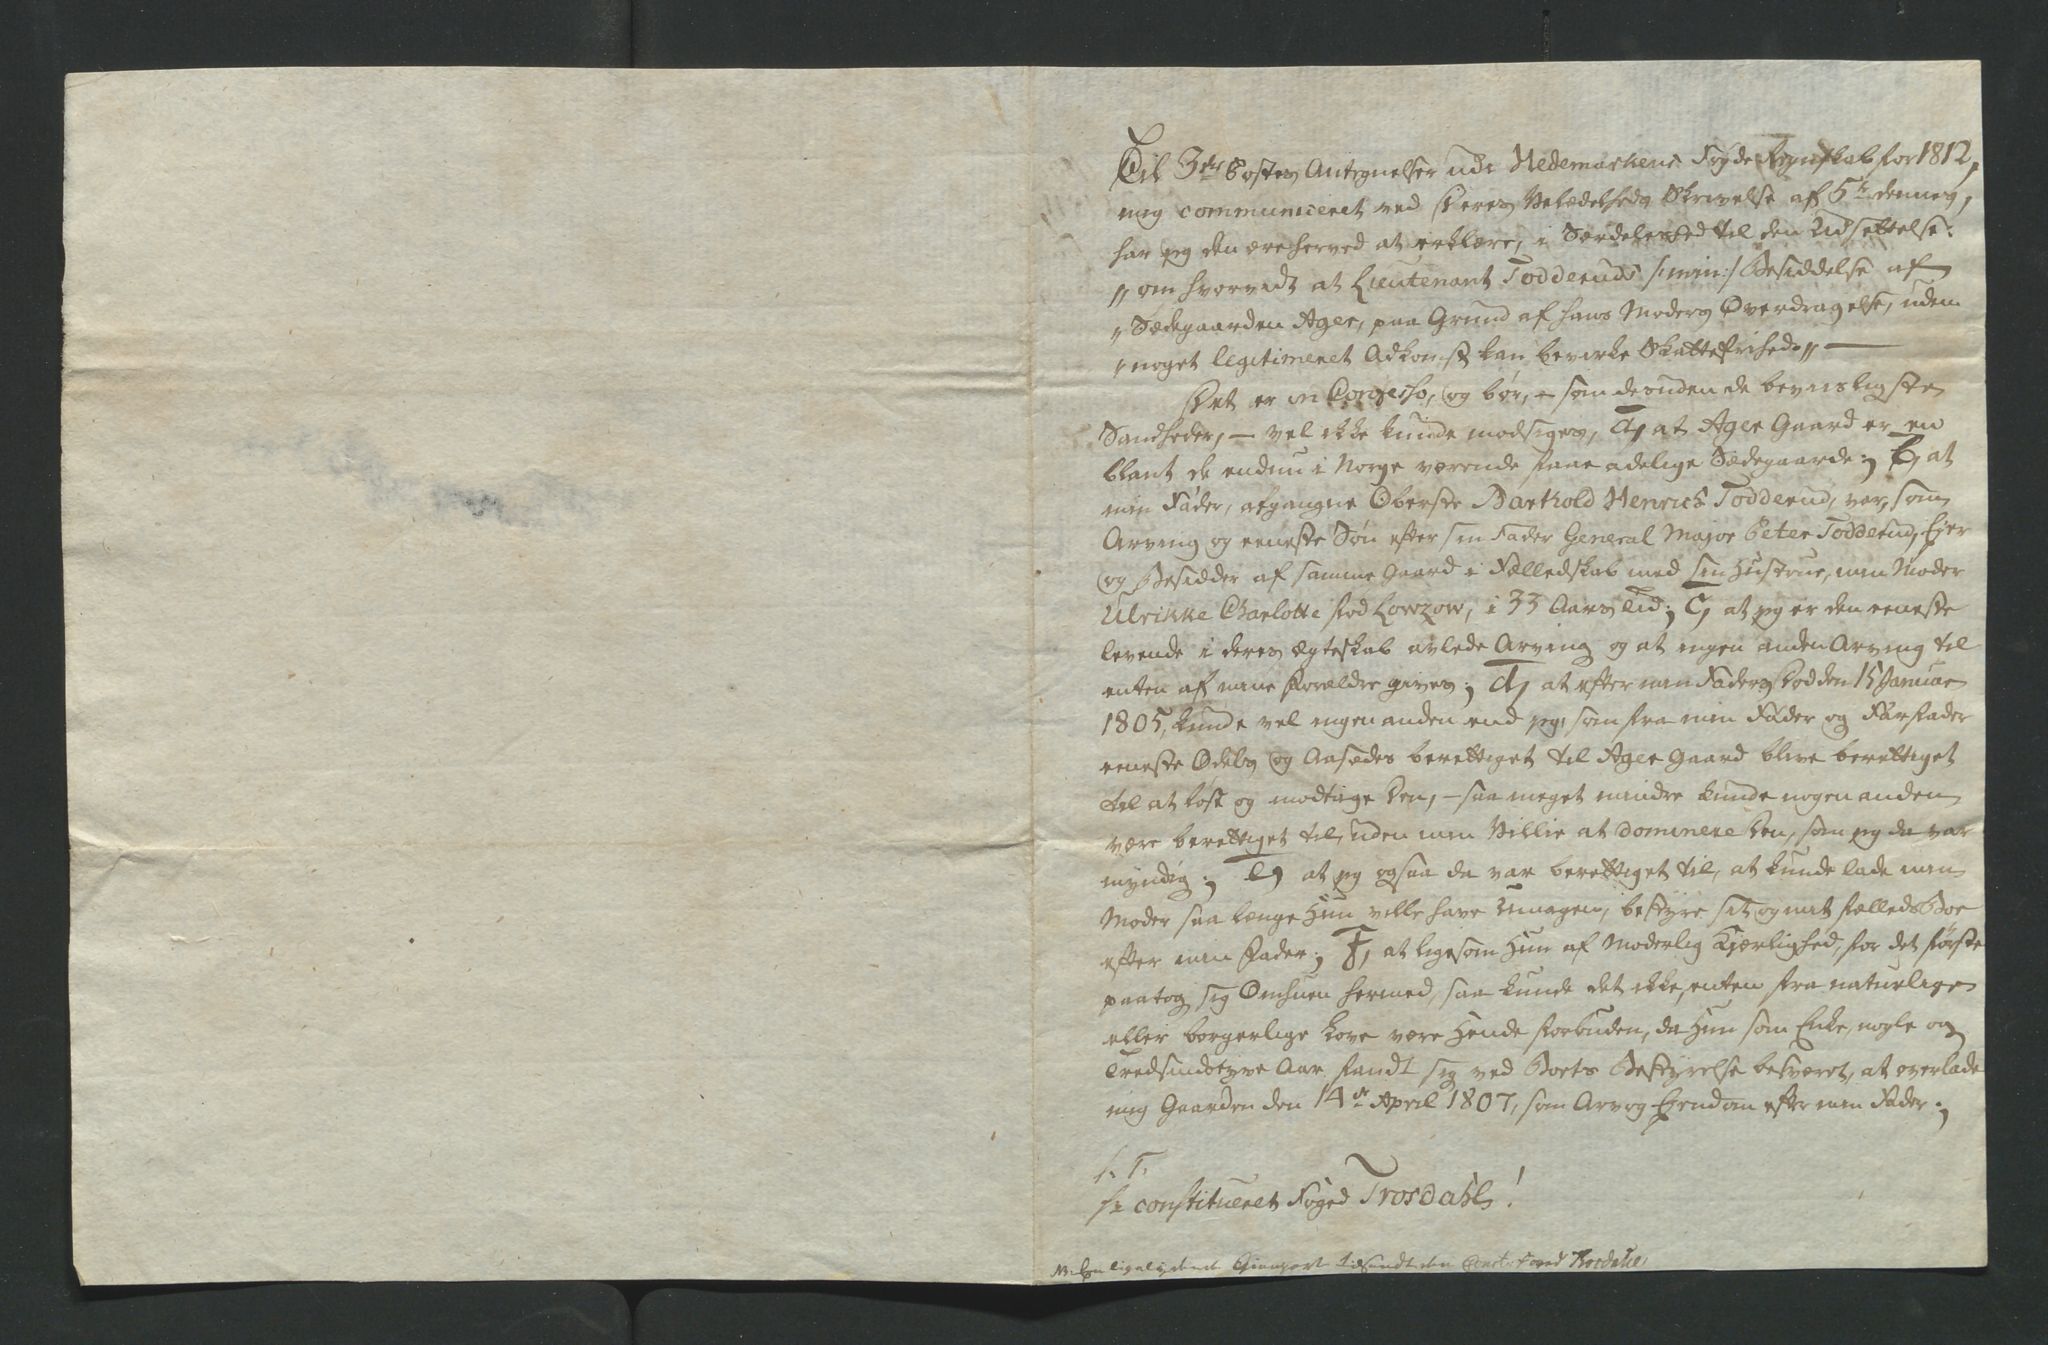 Til 3die Postes Antegnelser udi Hedemarkens Fogde Regnskab for 1812,
mig communiceret ved Deres Velædelheds Skrivelse af 5te dennes,
har jeg den ære herved at erklære, i Særdeleshed til den Udsettelse:
„om hvorvidt at Lieutenant Todderuds /:min:/ Besiddelse af
„Sædegaarden Ager, paa Grund af hans Moders Overdragelse, uden
„noget legitimeret Adkomst kan bevirke Skattefrihed.„ —
Det er in Confesso, og bør, — som desuden de beviisligste
Sandheder, — vel ikke kunde modsiges, a, at Ager Gaard er en
blant de endnu i Norge værende faae adelige Sædegaarde; b, at
min Fader, afgangne Oberste Barthold Henrich Todderud, var, som
Arving og eeneste Søn efter sin Fader General Major Peter Todderud, Eier
og Besidder af samme Gaard i Fælledskab med sin Hustrue, min Moder
Ulrikke Charlotte fød Lowzow, i 33 Aars Tid; c, at jeg er den eeneste
levende i deres Ægteskab avlede Arving og at ingen anden Arving til
enten af mine Forældre gives; d, at efter min Faders Død den 15 Januar
1805, kunde vel ingen anden end jeg, som fra min Fader og Farfader
eeneste Odels og Aasædes berettiget til Ager Gaard blive berettiget
til at løse og modtage den, — saa meget mindre kunde nogen anden
være berettiget til, uden min Villie at dominere den, som jeg da var
myndig; e, at jeg ogsaa da var berettiget til, at kunde lade min
Moder saa længe Hun ville have Umagen, bestyre sit og mit Fælleds Boe
efter min Fader; f, at ligesom Hun af Moderlig Kjærlighed, for det første
paatog sig Omhuen hermed, saa kunde det ikke, enten fra naturlige
eller borgerlige Love være Hende forbuden, da Hun som Enke, nogle og
Tredsindstyve Aar fandt sig ved Boets Bestyrelse besværet, at overlade
mig Gaarden den 14de April 1807, som Arv og Eiendom efter min Fader;
S. T.
Hr constitueret Foged Trosdahl!
NB. En ligelydende Gienpart tilsendt den Const: Foged Trosdahl,